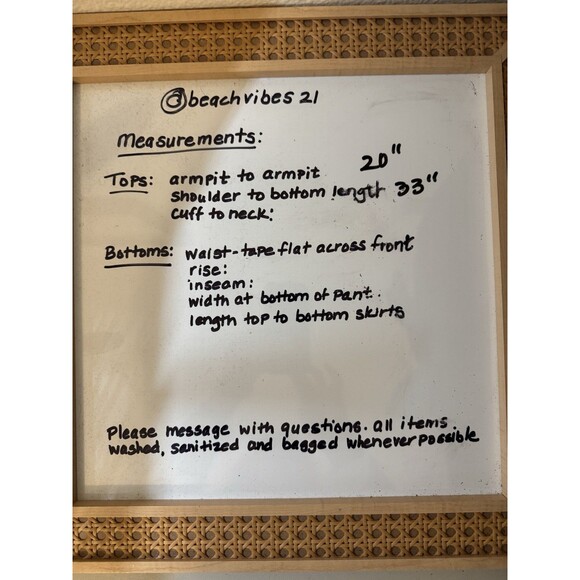 @beachvibes 21
Measurements:
Tops: armpit to armpit 20"
shoulder to bottom length 33"
cuff to neck:
Bottoms: waist-tape flat across front
rise:
inseam:
width at bottom of pant.
length top to bottom skirts
Please message with questions. all items
washed, sanitized and bagged whenever possible